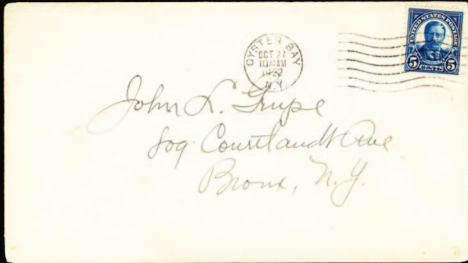 OYSTER BAY
OCT 27
1922
N.Y.
UNITED STATES POSTAGE
5 CENTS 5
John L. Grupe
809 Courtlandt Ave
Bronx, N.Y.